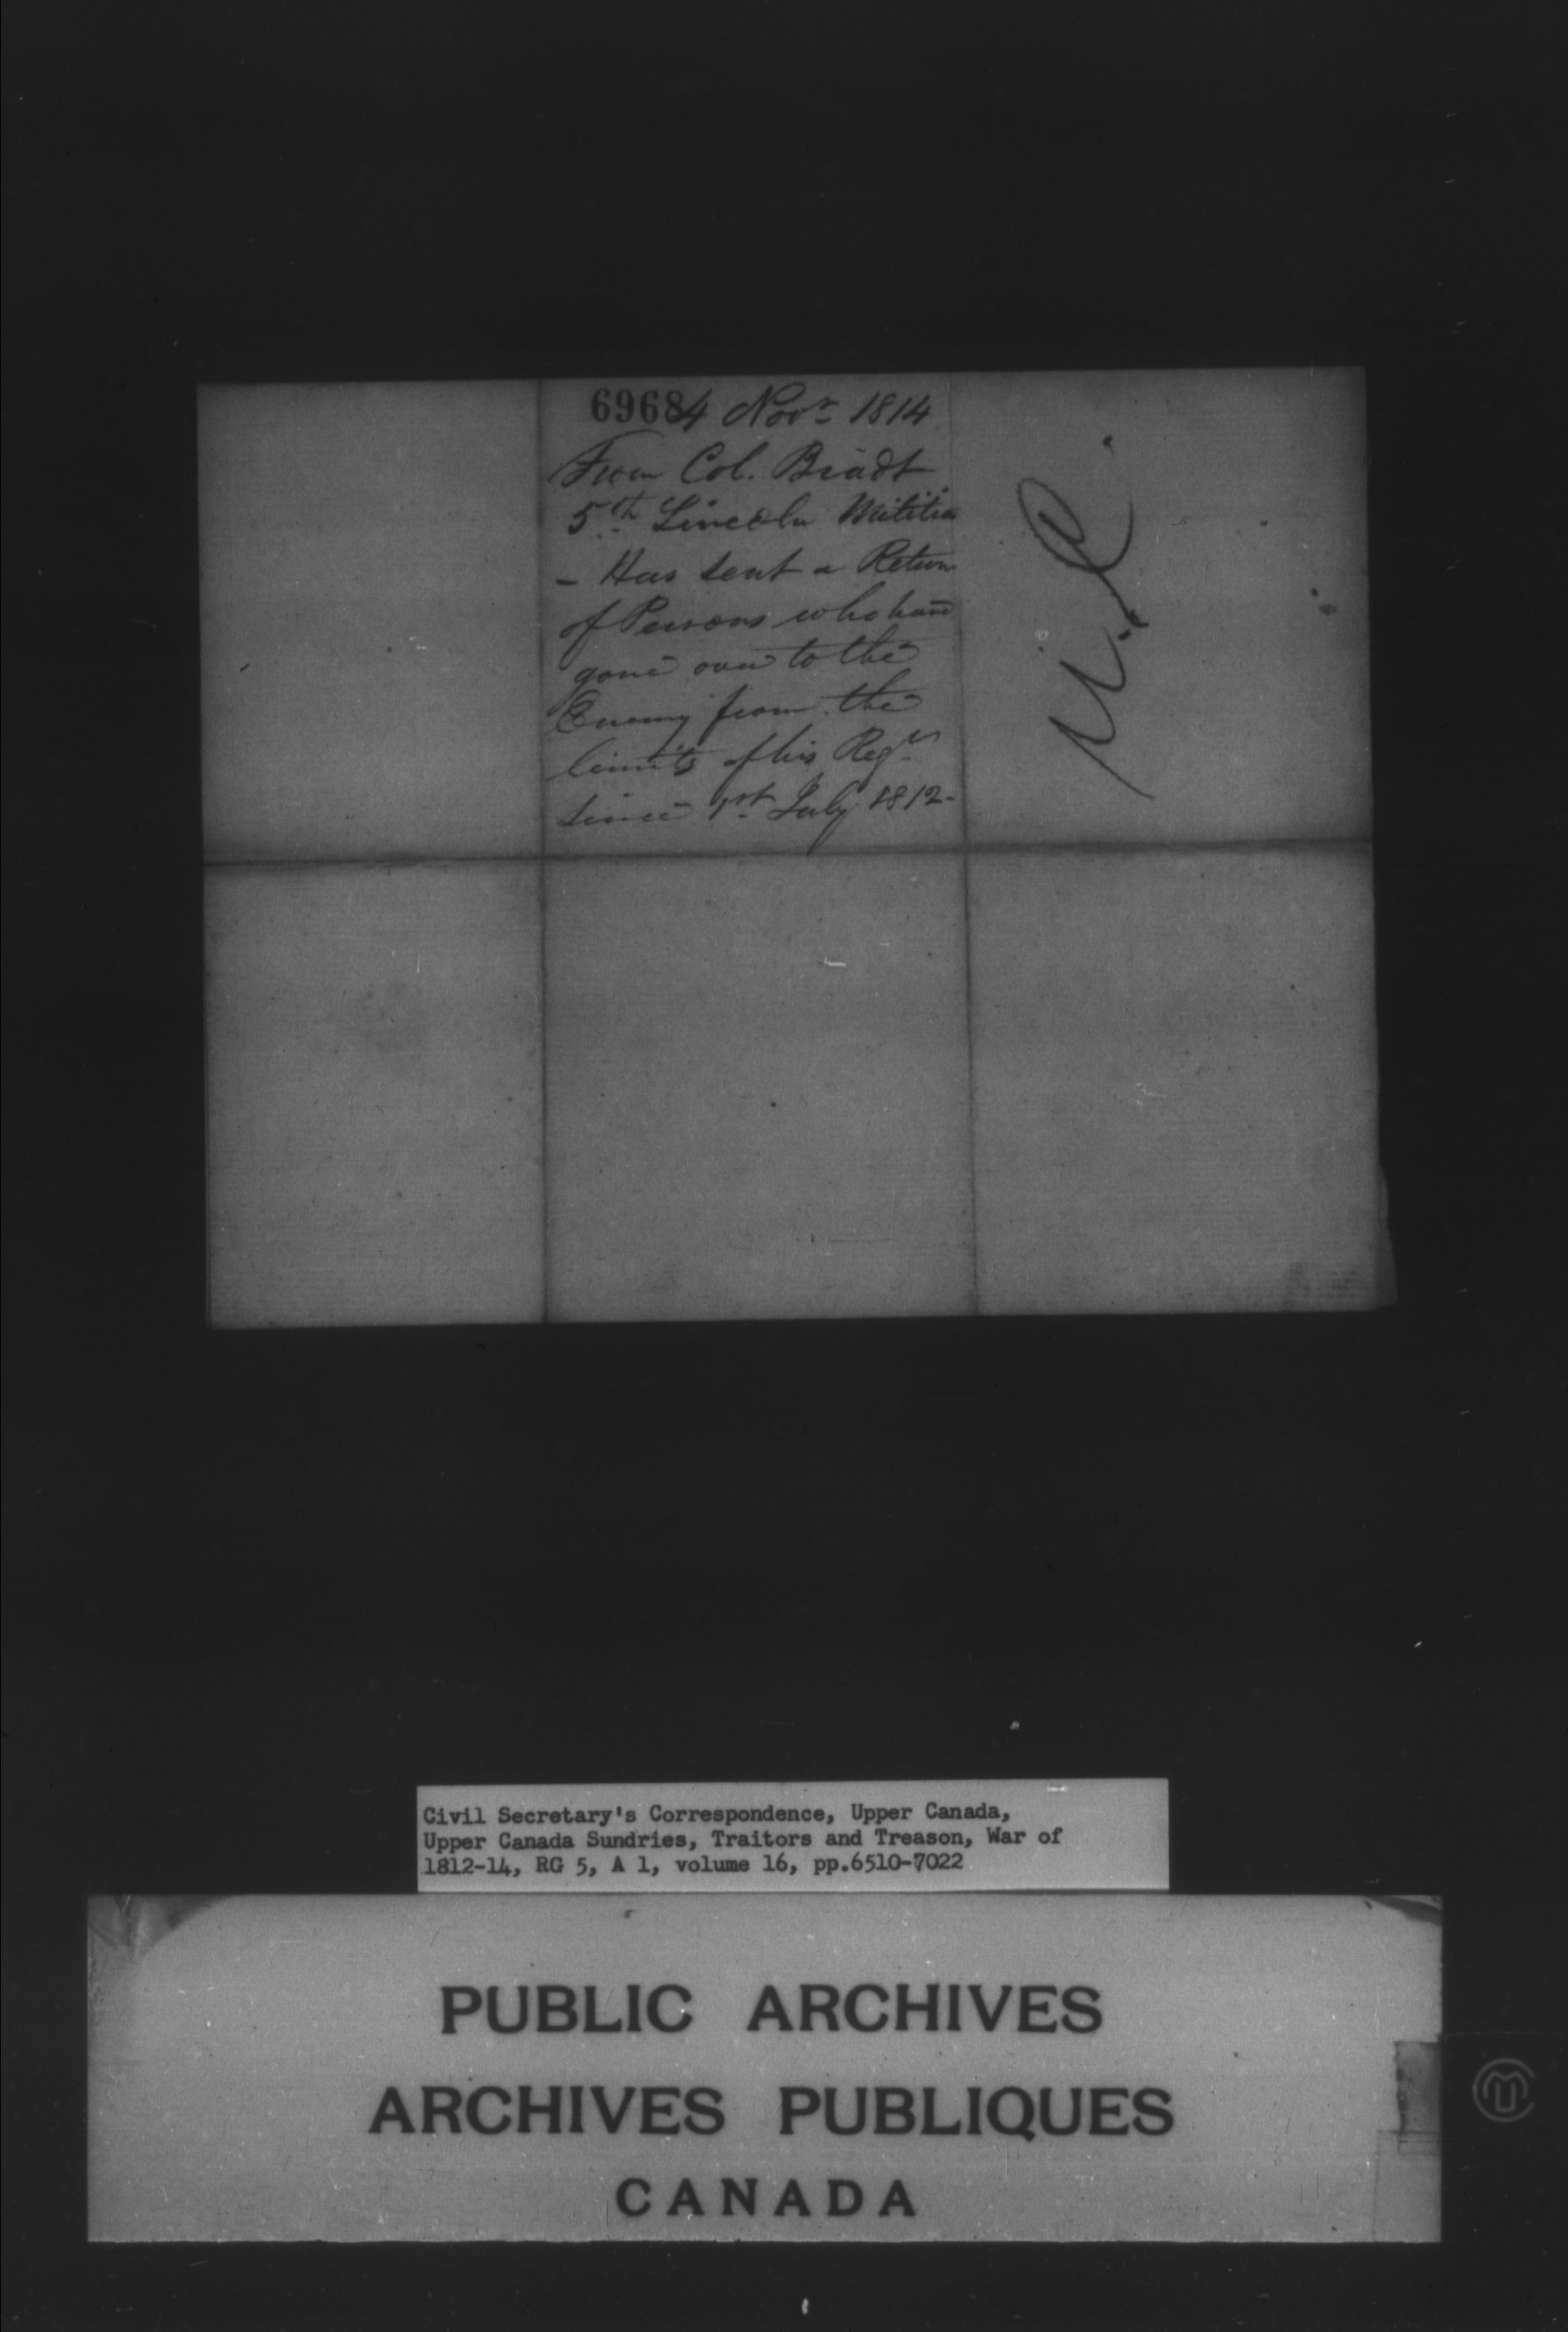 6968 4 Novr 1814
From Col. Bradt
5th Lincoln Militia
- Has sent a Return
of Persons who have
gone over to the
Enemy from the
limits of his Regt
since 1st July 1812-
U.C.
Civil Secretary's Correspondence, Upper Canada,
Upper Canada Sundries, Traitors and Treason, War of
1812-14, RG 5, A 1, volume 16, pp.6510-7022
PUBLIC ARCHIVES
ARCHIVES PUBLIQUES
CANADA